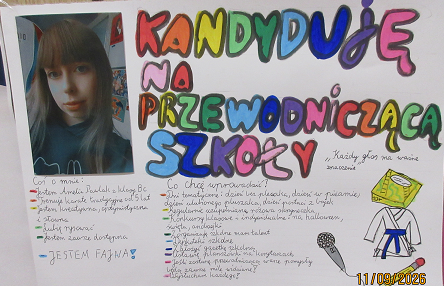 KANDYDUJĘ
NA
PRZEWODNICZĄCĄ
SZKOŁY
"Każdy głos ma ważne
znaczenie"
Coś o mnie:
Jestem Amelia Pawlak z klasy 8c
Trenuję karate tradycyjne od 5 lat
Jestem kreatywna, optymistyczna
i szalona
Lubię rysować
Jestem zawsze dostępna
JESTEM FAJNA!
Co chcę wprowadzić?
Dni tematyczne: dzień bez plecaka, dzień w piżamie,
dzień ulubionego pluszaka, dzień postaci z bajek
Regularne uzupełnianie różowej skrzyneczki
Konkursy klasowe z
święta, andrzejki
szkolne mam talent
Dyskoteki szkolne
gazetkę szkolną
na korytarzach
Jeśli zostanę przewodniczącą wasze pomysły
będą zawsze mile widziane!
Wysłucham każdego!
11/09/2026